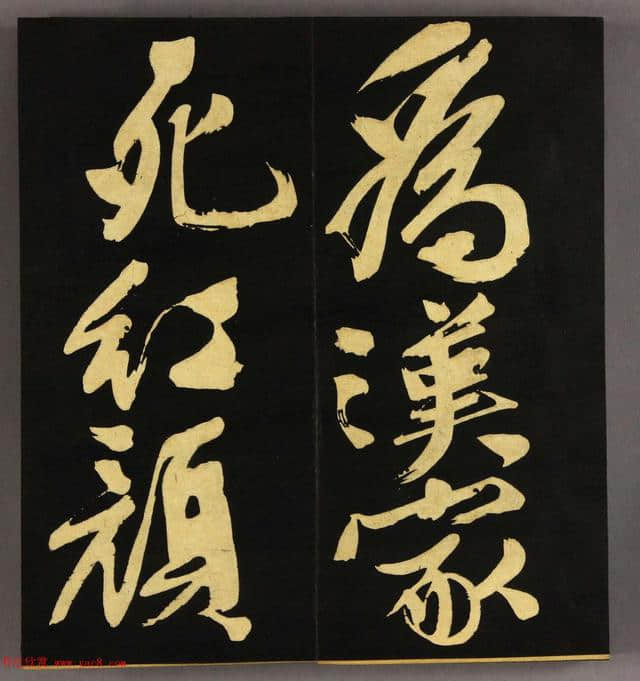 為漢家
死紅顏
www.yac8.com